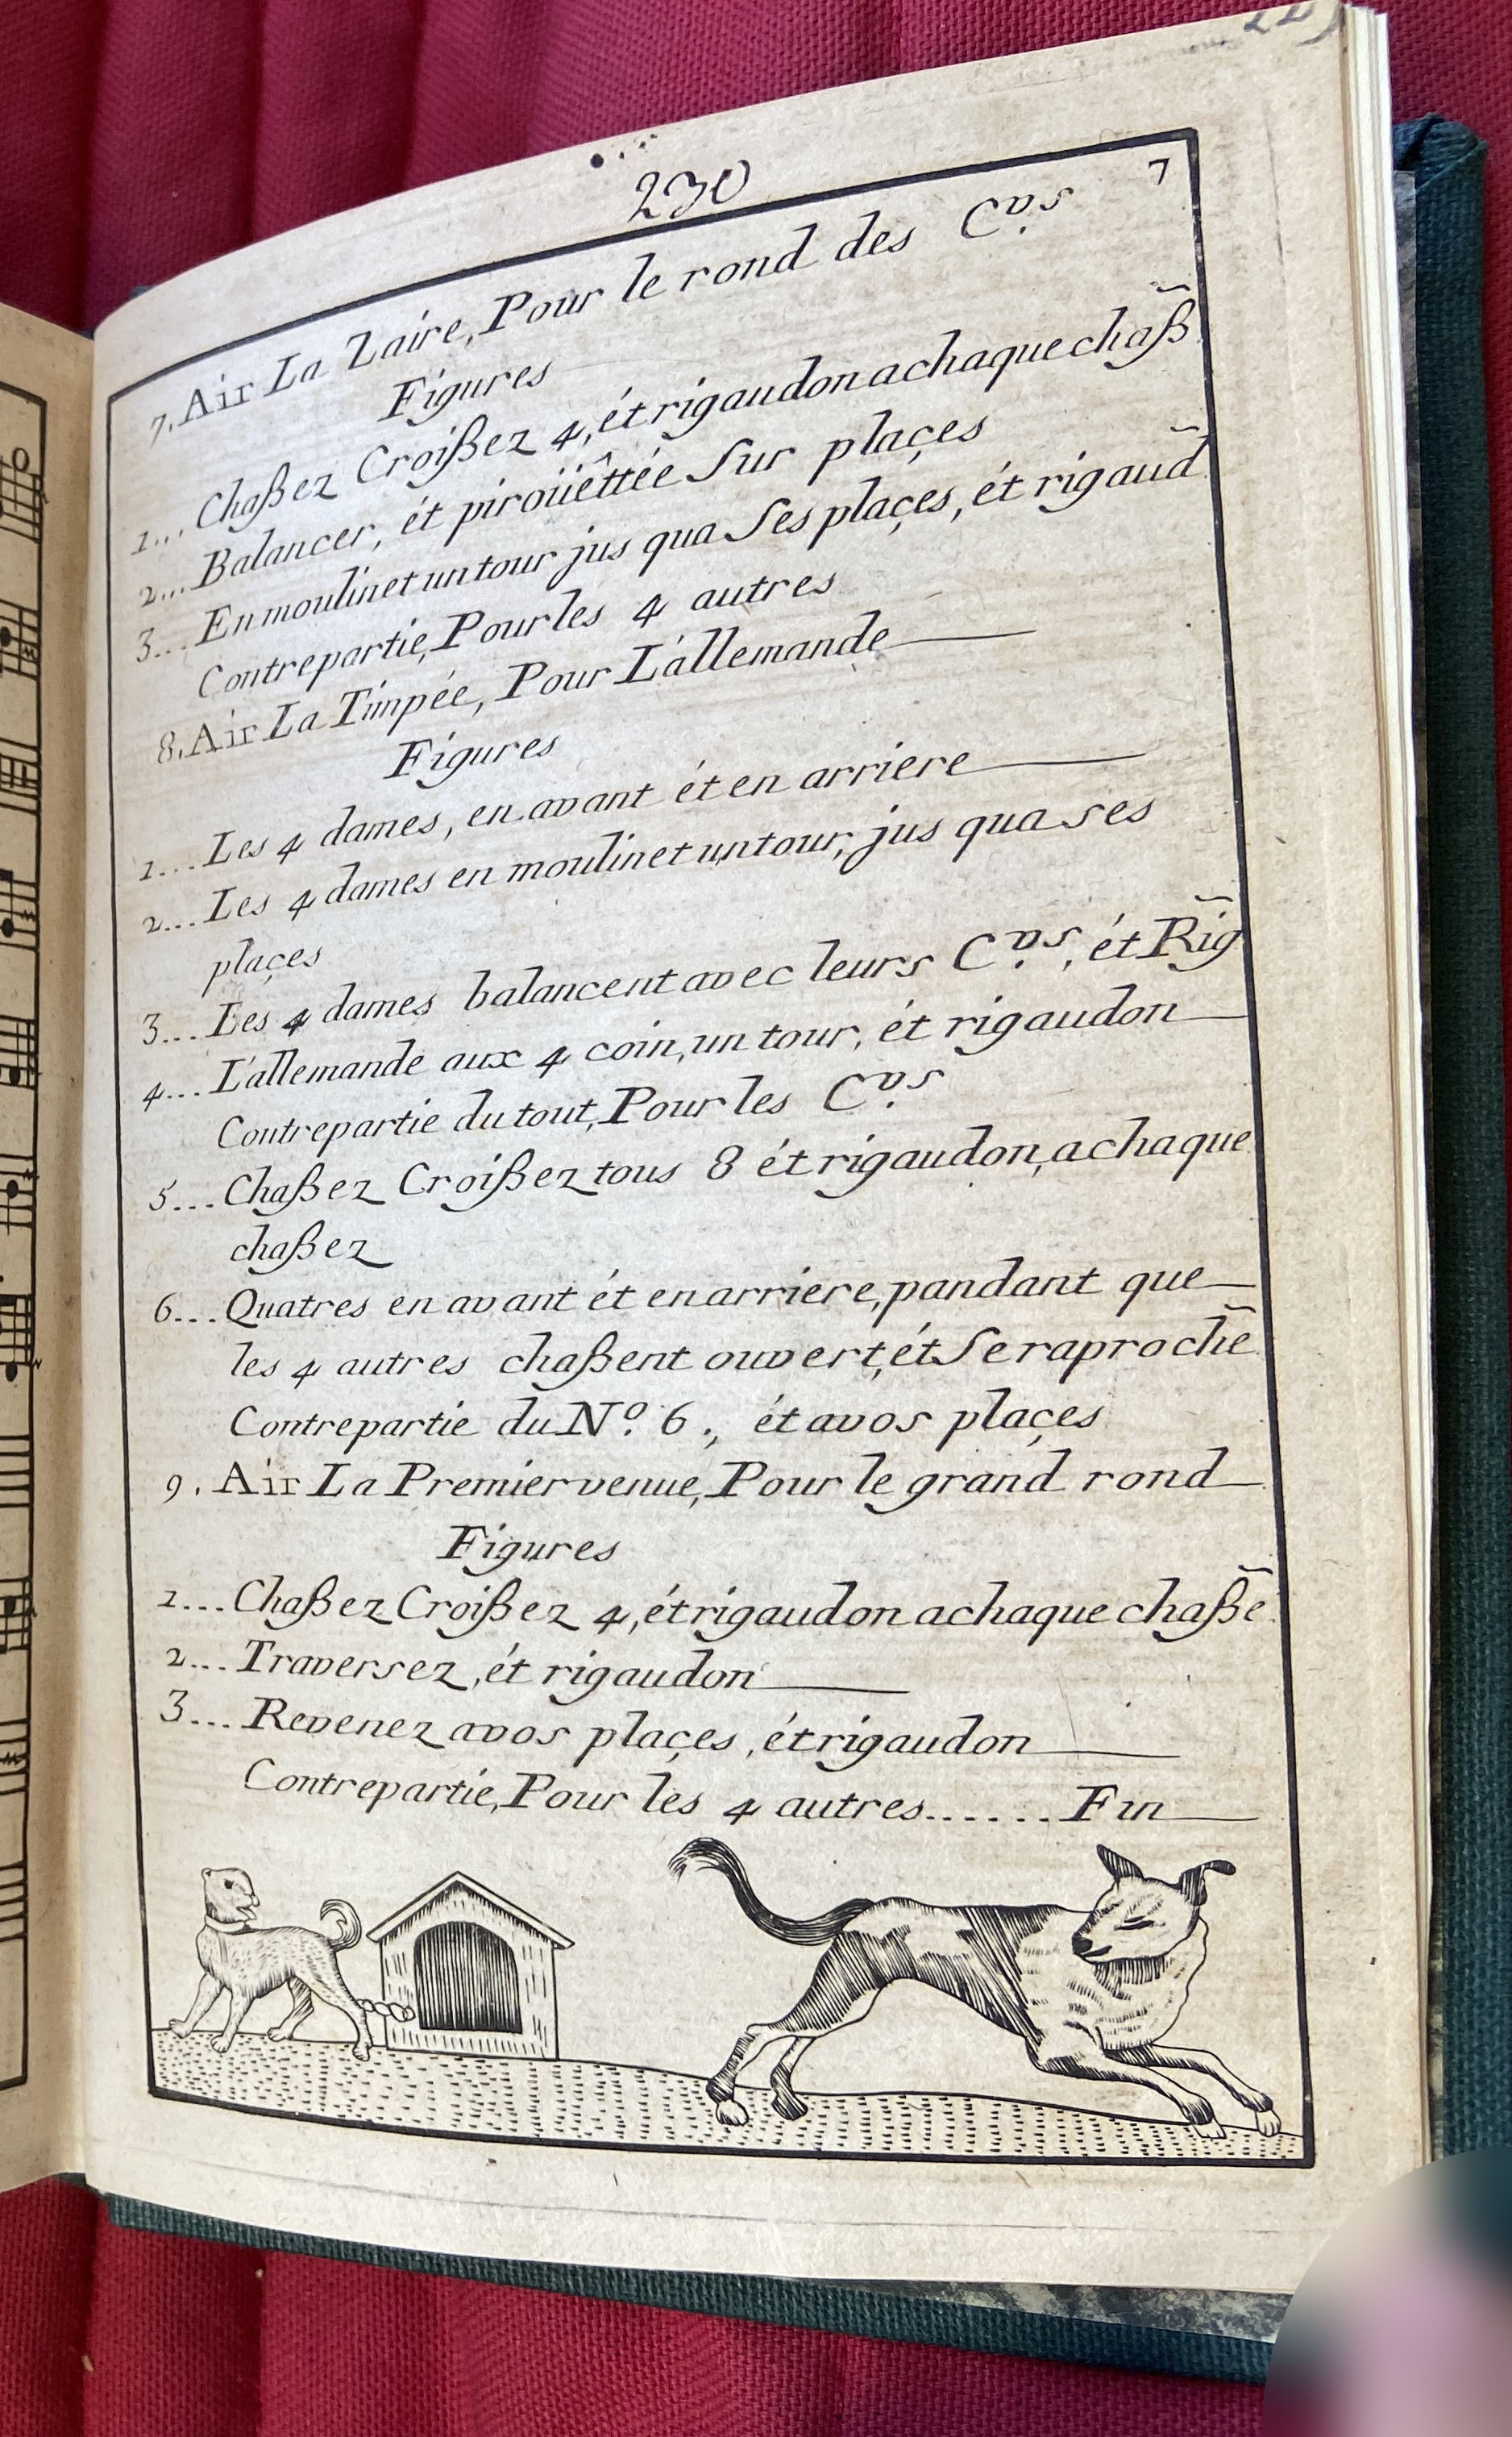 230
7
7. Air La Zaire, Pour le rond des C.vs
Figures
1... Chaßez Croißez 4, ét rigaudon a chaque chaß̃
2... Balancer, ét piroüêttée Sur plaçes
3... En moulinet un tour jus qua Ses plaçes, ét rigaud̃
Contrepartie, Pour les 4 autres
8. Air La Timpée, Pour L'allemande
Figures
1... Les 4 dames, en avant ét en arriere
2... Les 4 dames en moulinet un tour, jus qua ses
plaçes
3... Les 4 dames balancent avec leurs C.vs, ét Rig̃
4... L'allemande aux 4 coin, un tour, ét rigaudon
Contrepartie du tout, Pour les C.vs
5... Chaßez Croißez tous 8 ét rigaudon, a chaque
chaßez
6... Quatres en avant ét en arriere, pandant que
les 4 autres chaßent ouvert, ét Se raprochẽ
Contrepartie du No. 6., ét a vos plaçes
9. Air La Premier venue, Pour le grand rond
Figures
1... Chaßez Croißez 4, ét rigaudon a chaque chaßẽ
2... Traversez, ét rigaudon
3... Revenez a vos plaçes, ét rigaudon
Contrepartie, Pour les 4 autres...... Fin